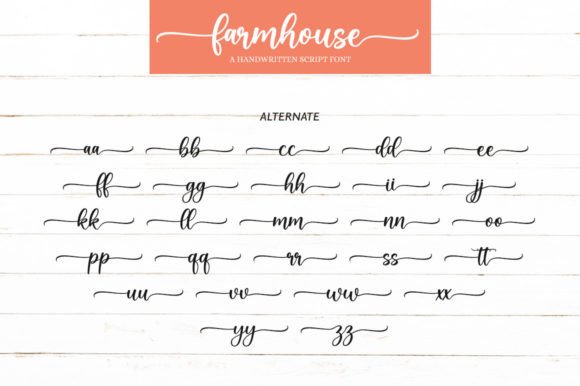 farmhouse
A HANDWRITTEN SCRIPT FONT
ALTERNATE
aa bb cc dd ee
ff gg hh ii jj
kk ll mm nn oo
pp qq rr ss tt
uu vv ww xx
yy zz